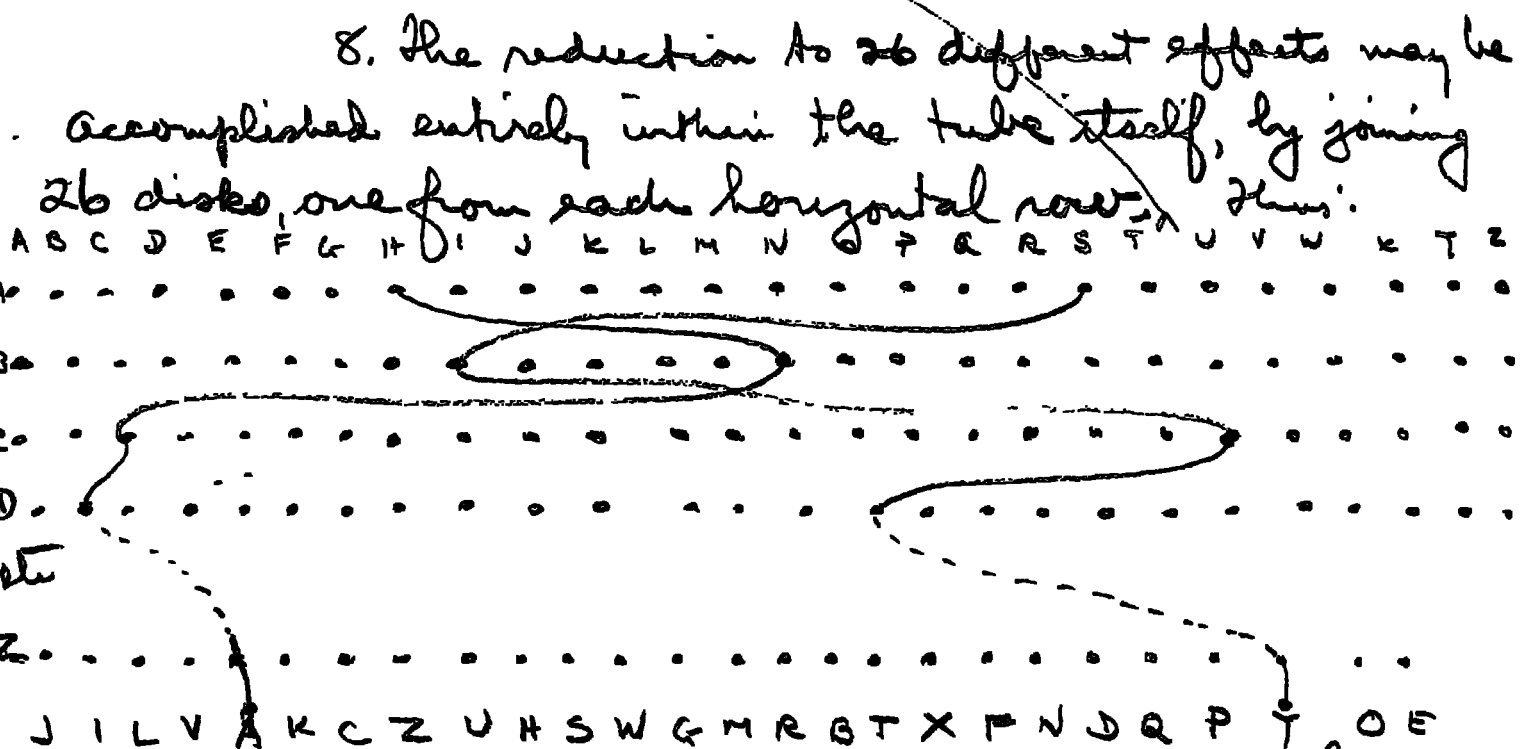 8. The reduction to 26 different effects may be
accomplished entirely within the tube itself, by joining
26 disks, one from each horizontal row. Thus:
A B C D E F G H I J K L M N O P Q R S T U V W X Y Z
A
B
C
D
etc
Z
J I L V A K C Z U H S W G M R B T X F N D Q P Y O E